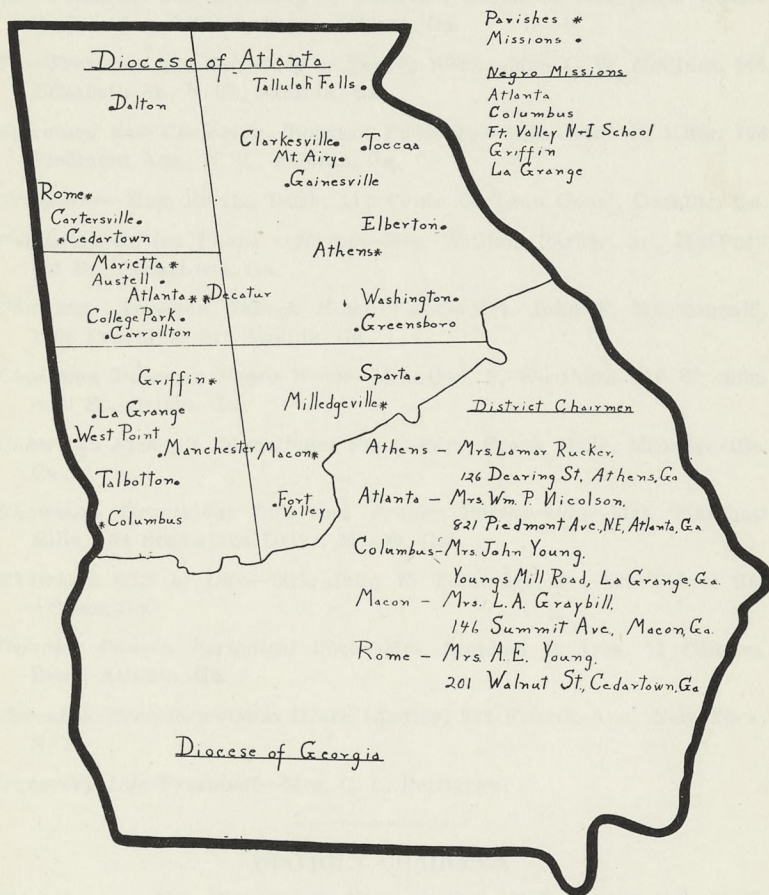 Parishes *
Missions •
Negro Missions
Atlanta
Columbus
Ft. Valley N-I School
Griffin
La Grange
Diocese of Atlanta
Tallulah Falls •
•Dalton
Clarkesville•
•Toccoa
Mt. Airy•
•Gainesville
Rome*
Cartersville•
*Cedartown
Elberton•
Athens*
Marietta *
Austell •
Atlanta * *Decatur
College Park •
•Carrollton
Washington•
•Greensboro
Griffin*
•La Grange
•West Point
•Manchester
Talbotton•
*Columbus
Sparta •
Milledgeville*
Macon*
•Fort
Valley
District Chairmen
Athens – Mrs. Lamar Rucker,
126 Dearing St, Athens, Ga
Atlanta – Mrs. Wm. P. Nicolson,
821 Piedmont Ave., NE, Atlanta, Ga
Columbus – Mrs. John Young.
Youngs Mill Road, La Grange, Ga.
Macon – Mrs. L.A. Graybill,
146 Summit Ave., Macon, Ga.
Rome – Mrs. A.E. Young.
201 Walnut St., Cedartown, Ga
Diocese of Georgia